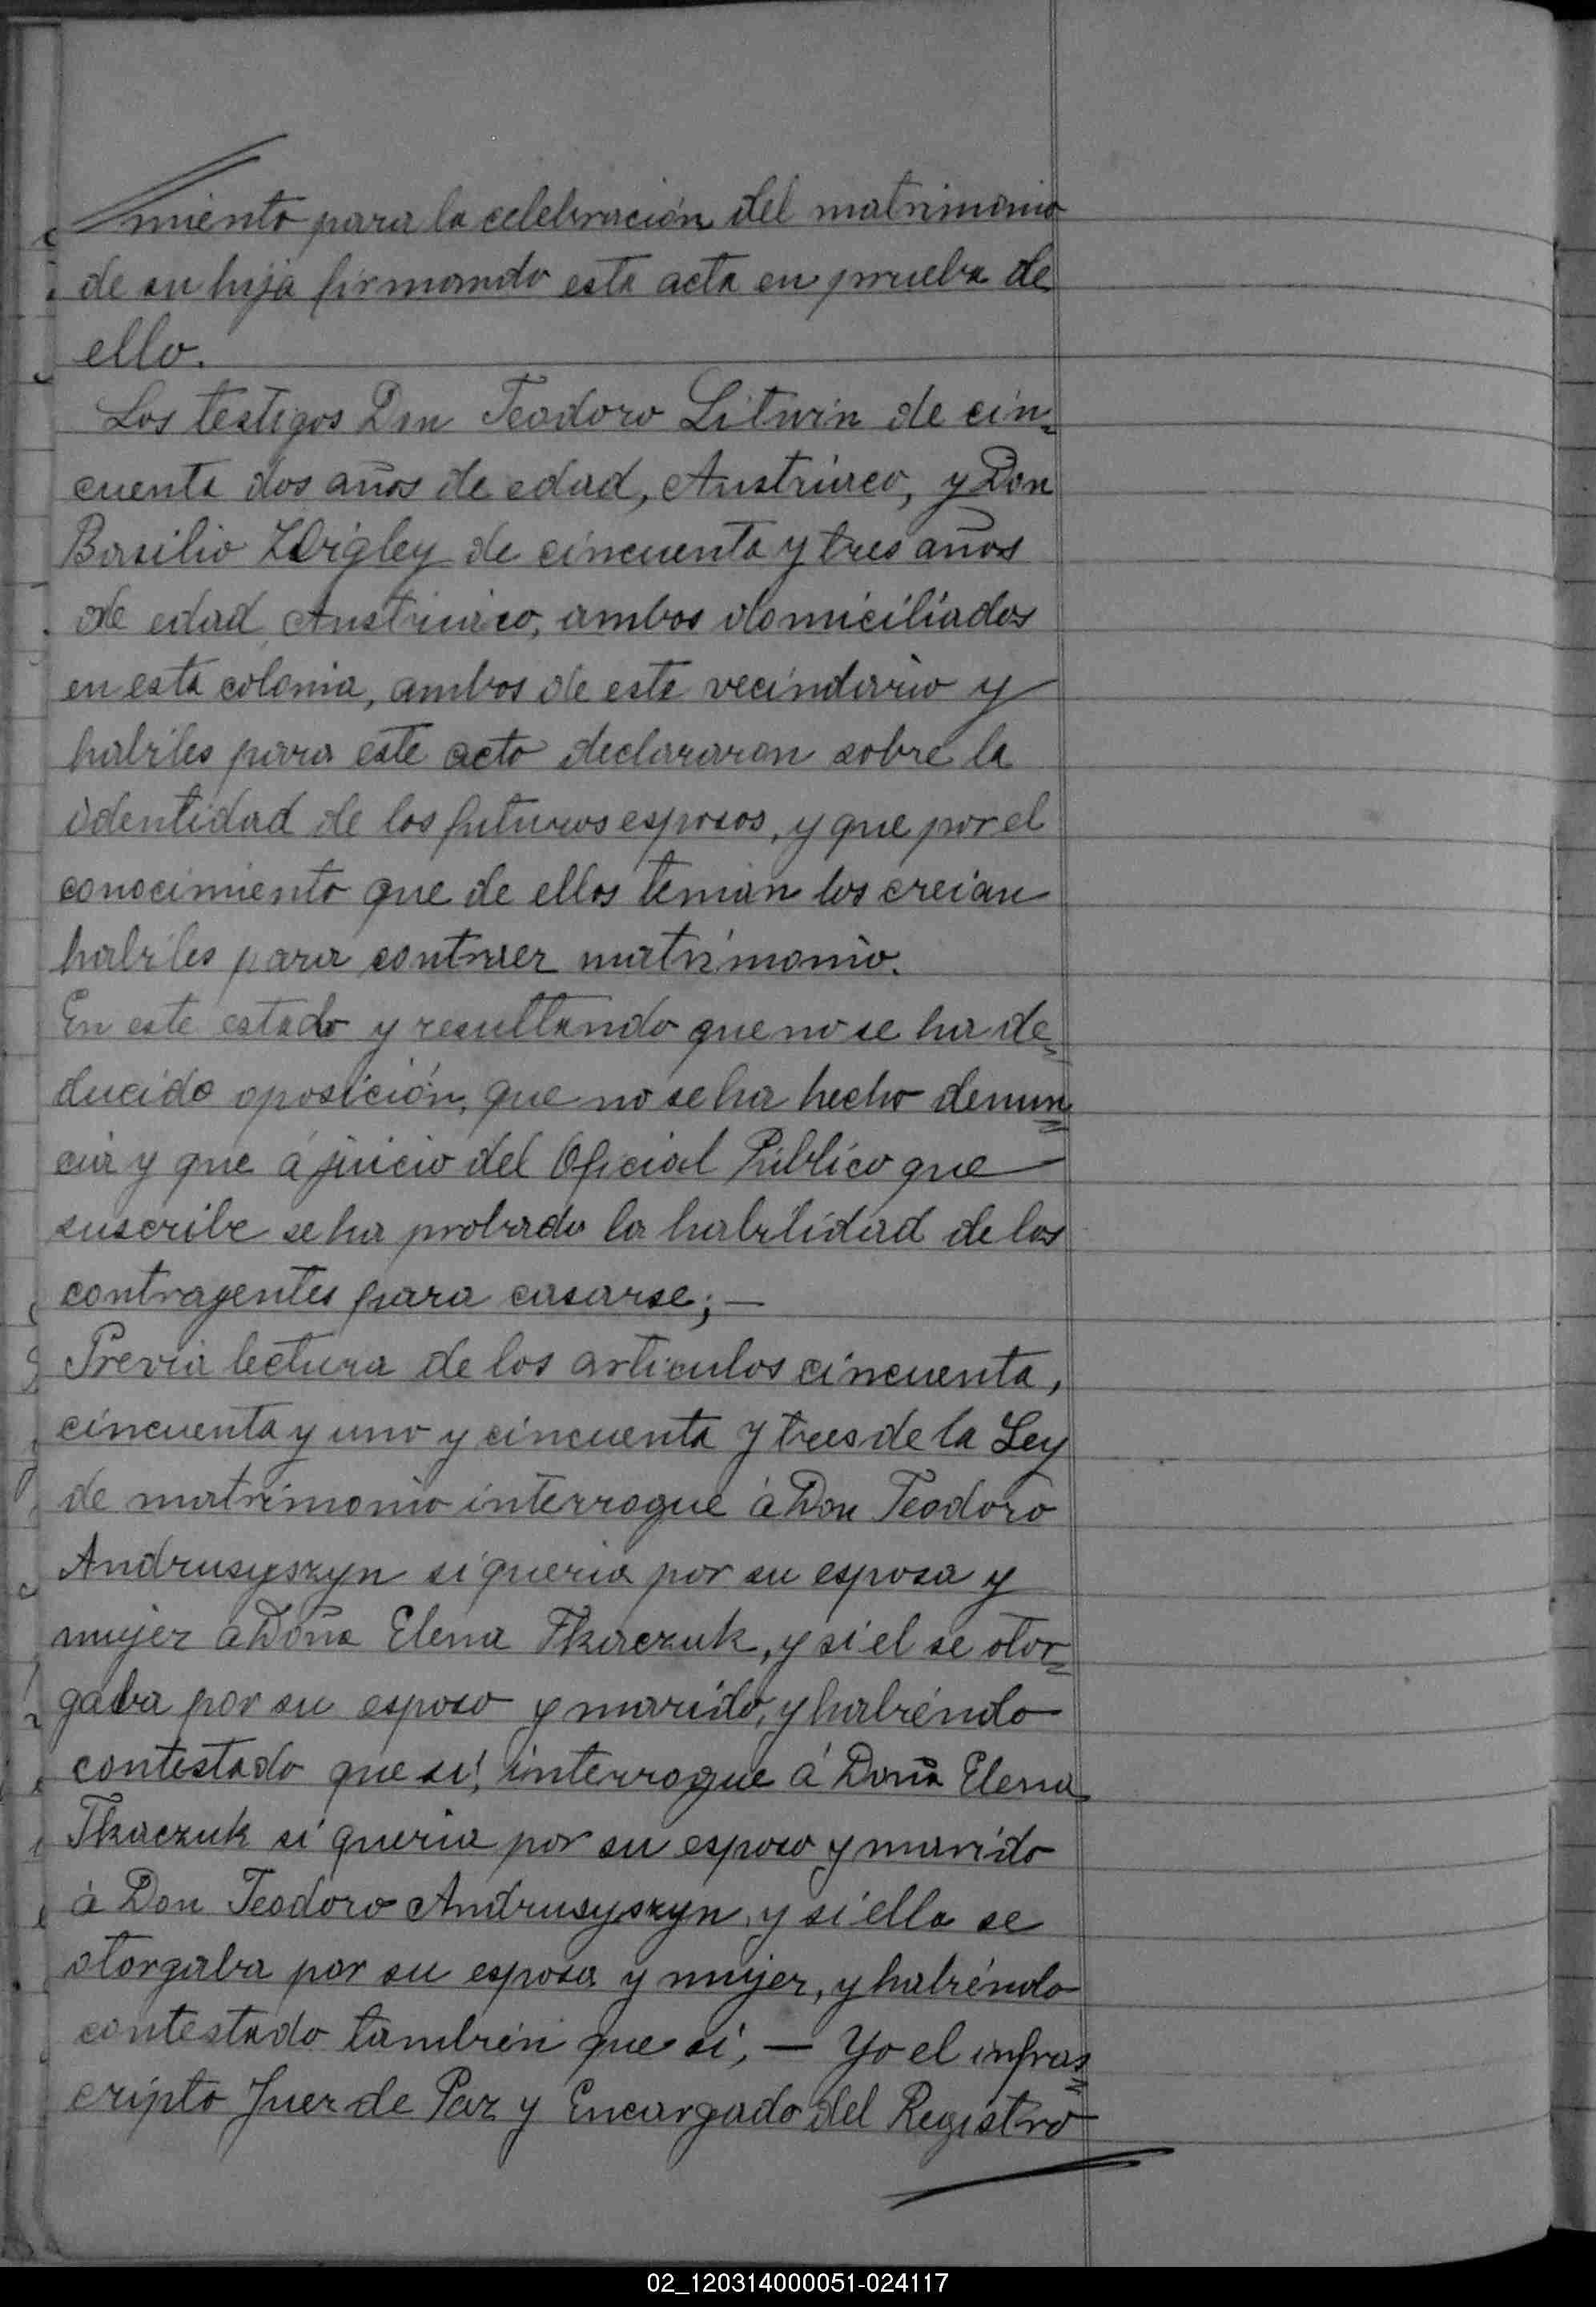 miento para la celebración del matrimonio
de su hija firmando esta acta en prueba de
ello.
Los testigos Don Teodoro Litwin de cin=
cuenta dos años de edad, Austriaco, y Don
Basilio de cincuenta y tres años
de edad Austriaco, ambos domiciliados
en esta colonia, ambos de este vecindario y
habiles para este acto declararon sobre la
identidad de los futuros esposos, y que por el
conocimiento que de ellos tenian los creian
habiles para contraer matrimonio.
En este estado y resultando que no se ha de=
ducido oposición, que no se ha hecho denun=
cia y que á juicio del Oficial Público que
suscribe se ha probado la habilidad de los
contrayentes para casarse; —
Previa lectura de los articulos cincuenta,
cincuenta y uno y cincuenta y tres de la Ley
de matrimonio interrogue á Don Teodoro
Andrusyszyn si queria por su esposa y
mujer á Doña Elena Tkaczuk, y si el se otor=
gaba por su esposo y marido, y habiéndo
contestado que sí, interrogue á Doña Elena
Tkaczuk si queria por su esposo y marido
á Don Teodoro Andrusyszyn, y si ella se
otorgaba por su esposa y mujer, y habiéndo
contestado tambien que sí, — Yo el infras=
cripto Juez de Paz y Encargado del Registro
02_120314000051-024117